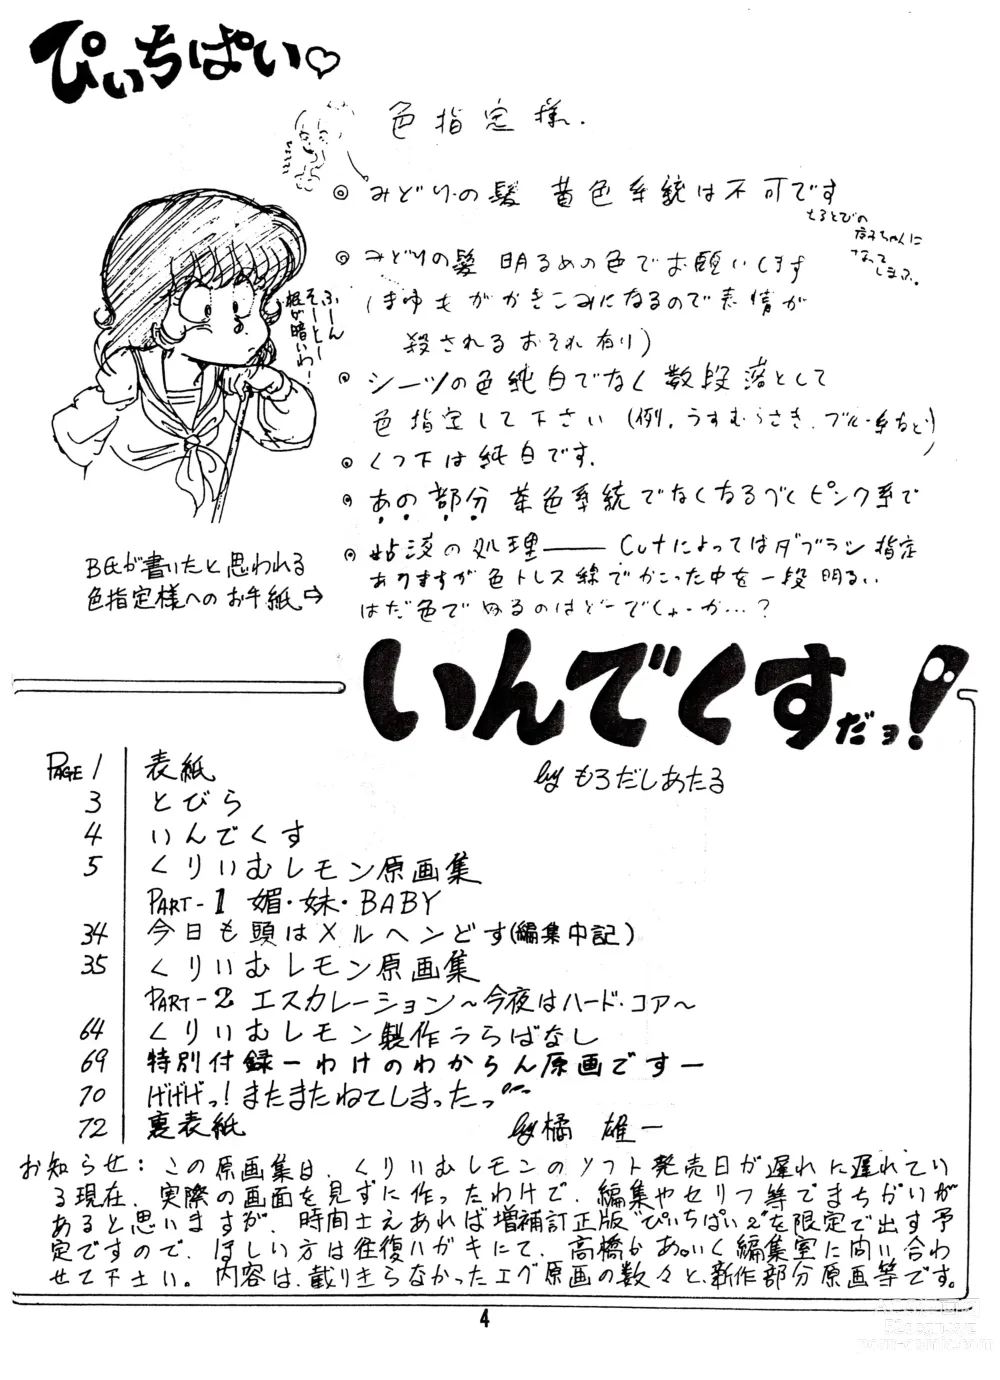 ぴぃちぱい♡
色指定様.
◎ みどりの髪 黄色系統は不可です
もろとびの
なって
しまふ。
◎ みどりの髪 明るめの色でお願いします
(まゆもがかきこみになるので表情が
殺されるおそれ有り)
◎ シーツの色純白でなく数段落として
色指定して下さい (例. うすむらさき. ブルー系など)
◎ くつ下は純白です.
◎ あの部分 茶色系統でなくなるべくピンク系で
◎ 粘液の処理―― Cutによってはダブラシ指定
ありますが色トレス線でかこった中を一段明るい
はだ色でぬるのはどーでしょーか…?
ふーん
そーとー
根が暗いわー
B氏が書いたと思われる
色指定様へのお手紙⇨
いんでくすだョ!
by もろだしあたる
PAGE 1 表紙
3 とびら
4 いんでくす
5 くりいむレモン原画集
PART-1 媚・妹・BABY
34 今日も頭はメルヘンどす(編集中記)
35 くりいむレモン原画集
PART-2 エスカレーション～今夜はハード・コア～
64 くりいむレモン製作うらばなし
69 特別付録ーわけのわからん原画ですー
70 げげげっ!またまたねてしまったっ
72 裏表紙 by 橘 雄一
お知らせ:この原画集は、くりいむレモンのソフト発売日が遅れに遅れてい
る現在、実際の画面を見ずに作ったわけで、編集やセリフ等でまちがいが
あると思いますが、時間士えあれば増補訂正版“ぴぃちぱい2”を限定で出す予
定ですので、ほしい方は往復ハガキにて、高橋かあいく編集室に問い合わ
せて下さい。内容は、載りきらなかったエグ原画の数々と、新作部分原画等です。
4